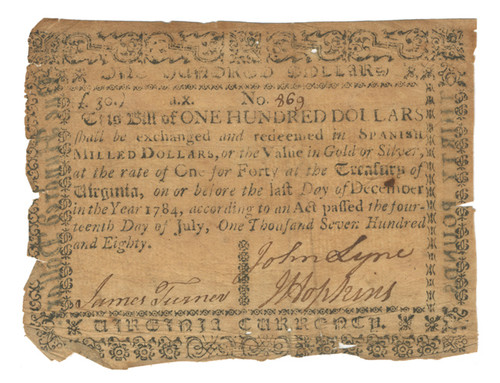 ONE HUNDRED DOLLARS
£. 30.) a.x. No. 869
This Bill of ONE HUNDRED DOLLARS
shall be exchanged and redeemed in SPANISH
MILLED DOLLARS, or the Value in Gold or Silver,
at the rate of One for Forty at the Treasury of
Virginia, on or before the last Day of December
in the Year 1784, according to an Act passed the four-
teenth Day of July, One Thousand Seven Hundred
and Eighty.
John Lyne
James Turner
J Hopkins
VIRGINIA CURRENCY.
THIRTY POUNDS